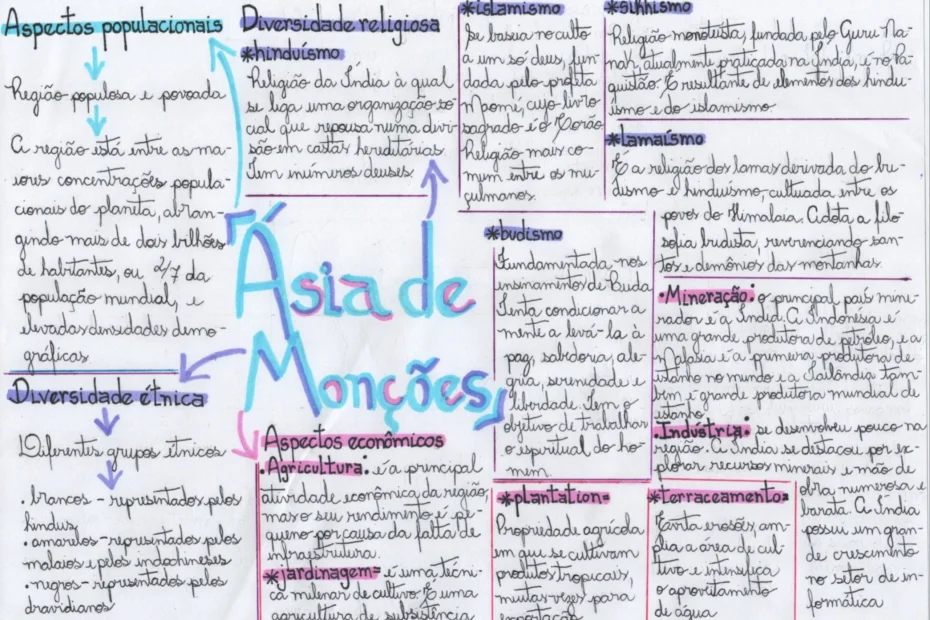 Aspectos populacionais
Região populosa e povoada
A região está entre as ma-
iores concentrações popula-
cionais do planeta, abran-
gindo mais de dois bilhões
de habitantes, ou 2/7 da
população mundial, e
elevadas densidades demo-
gráficas.
Diversidade étnica
Diferentes grupos étnicos
. brancos - representados pelos
hindus;
. amarelos - representados pelos
malaios e pelos indochineses
. negros - representados pelos
dravidianos
Ásia de
Monções
Diversidade religiosa
*hinduísmo
Religião da Índia à qual
se liga uma organização so-
cial que repousa numa divi-
são em castas hereditárias.
Tem inúmeros deuses.
*islamismo
Se baseia no culto
a um só deus, fun-
dada pelo profeta
Maomé, cujo livro
sagrado é o Corão
Religião mais co-
mum entre os mu-
çulmanos.
*sikhismo
Religião monoteísta, fundada pelo Guru Na-
nak, atualmente praticada na Índia, e no Pa-
quistão. É resultante de elementos do hindu-
ísmo e do islamismo.
*lamaísmo
É a religião dos lamas derivada do bu-
dismo e hinduísmo, cultuada entre os
povos do Himalaia. Adota a filo-
sofia budista, reverenciando san-
tos e demônios das montanhas.
*budismo
Fundamentada nos
ensinamentos de Buda
Tenta condicionar a
mente a levá-la à
paz, sabedoria, ale-
gria, serenidade e
liberdade. Tem o
objetivo de trabalhar
o espiritual do ho-
mem.
Aspectos econômicos
. Agricultura: é a principal
atividade econômica da região,
mas o seu rendimento é pe-
queno por causa da falta de
infraestrutura.
*jardinagem= é uma técni-
ca milenar de cultivo. É uma
agricultura de subsistência
*plantation=
Propriedade agrícola
em que se cultivam
produtos tropicais,
muitas vezes para
exportação
*terraceamento=
Evita erosões, am-
plia a área de cul-
tivo e intensifica
o aproveitamento
de água
. Mineração: o principal país mine-
rador é a Índia. A Indonésia é
uma grande produtora de petróleo, e a
Malásia é a primeira produtora de
estanho no mundo e a Tailândia tam-
bém é grande produtora mundial de
estanho.
. Indústria: se desenvolveu pouco na
região. A Índia se destacou por ex-
plorar recursos minerais e mão de
obra numerosa e
barata. A Índia
possui um gran-
de crescimento
no setor de in-
formática